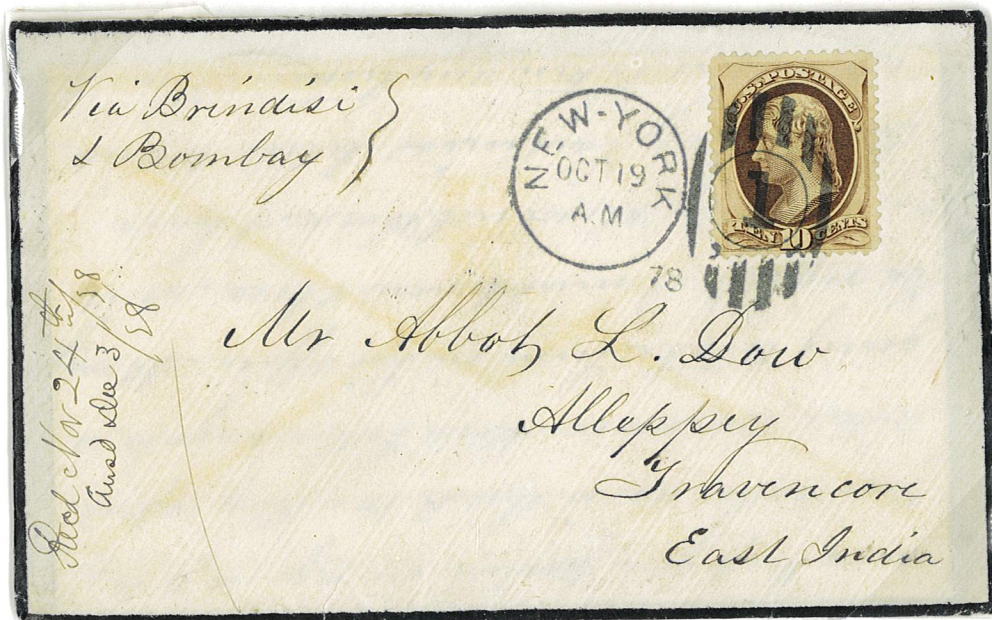 Via Brindisi
& Bombay
NEW-YORK
OCT 19
A.M
78
U.S. POSTAGE
1
TEN 10 CENTS
Mr Abbot L. Dow
Alleppey
Travencore
East India
Recd Nov 24th/78
Ansd Dec 3/78